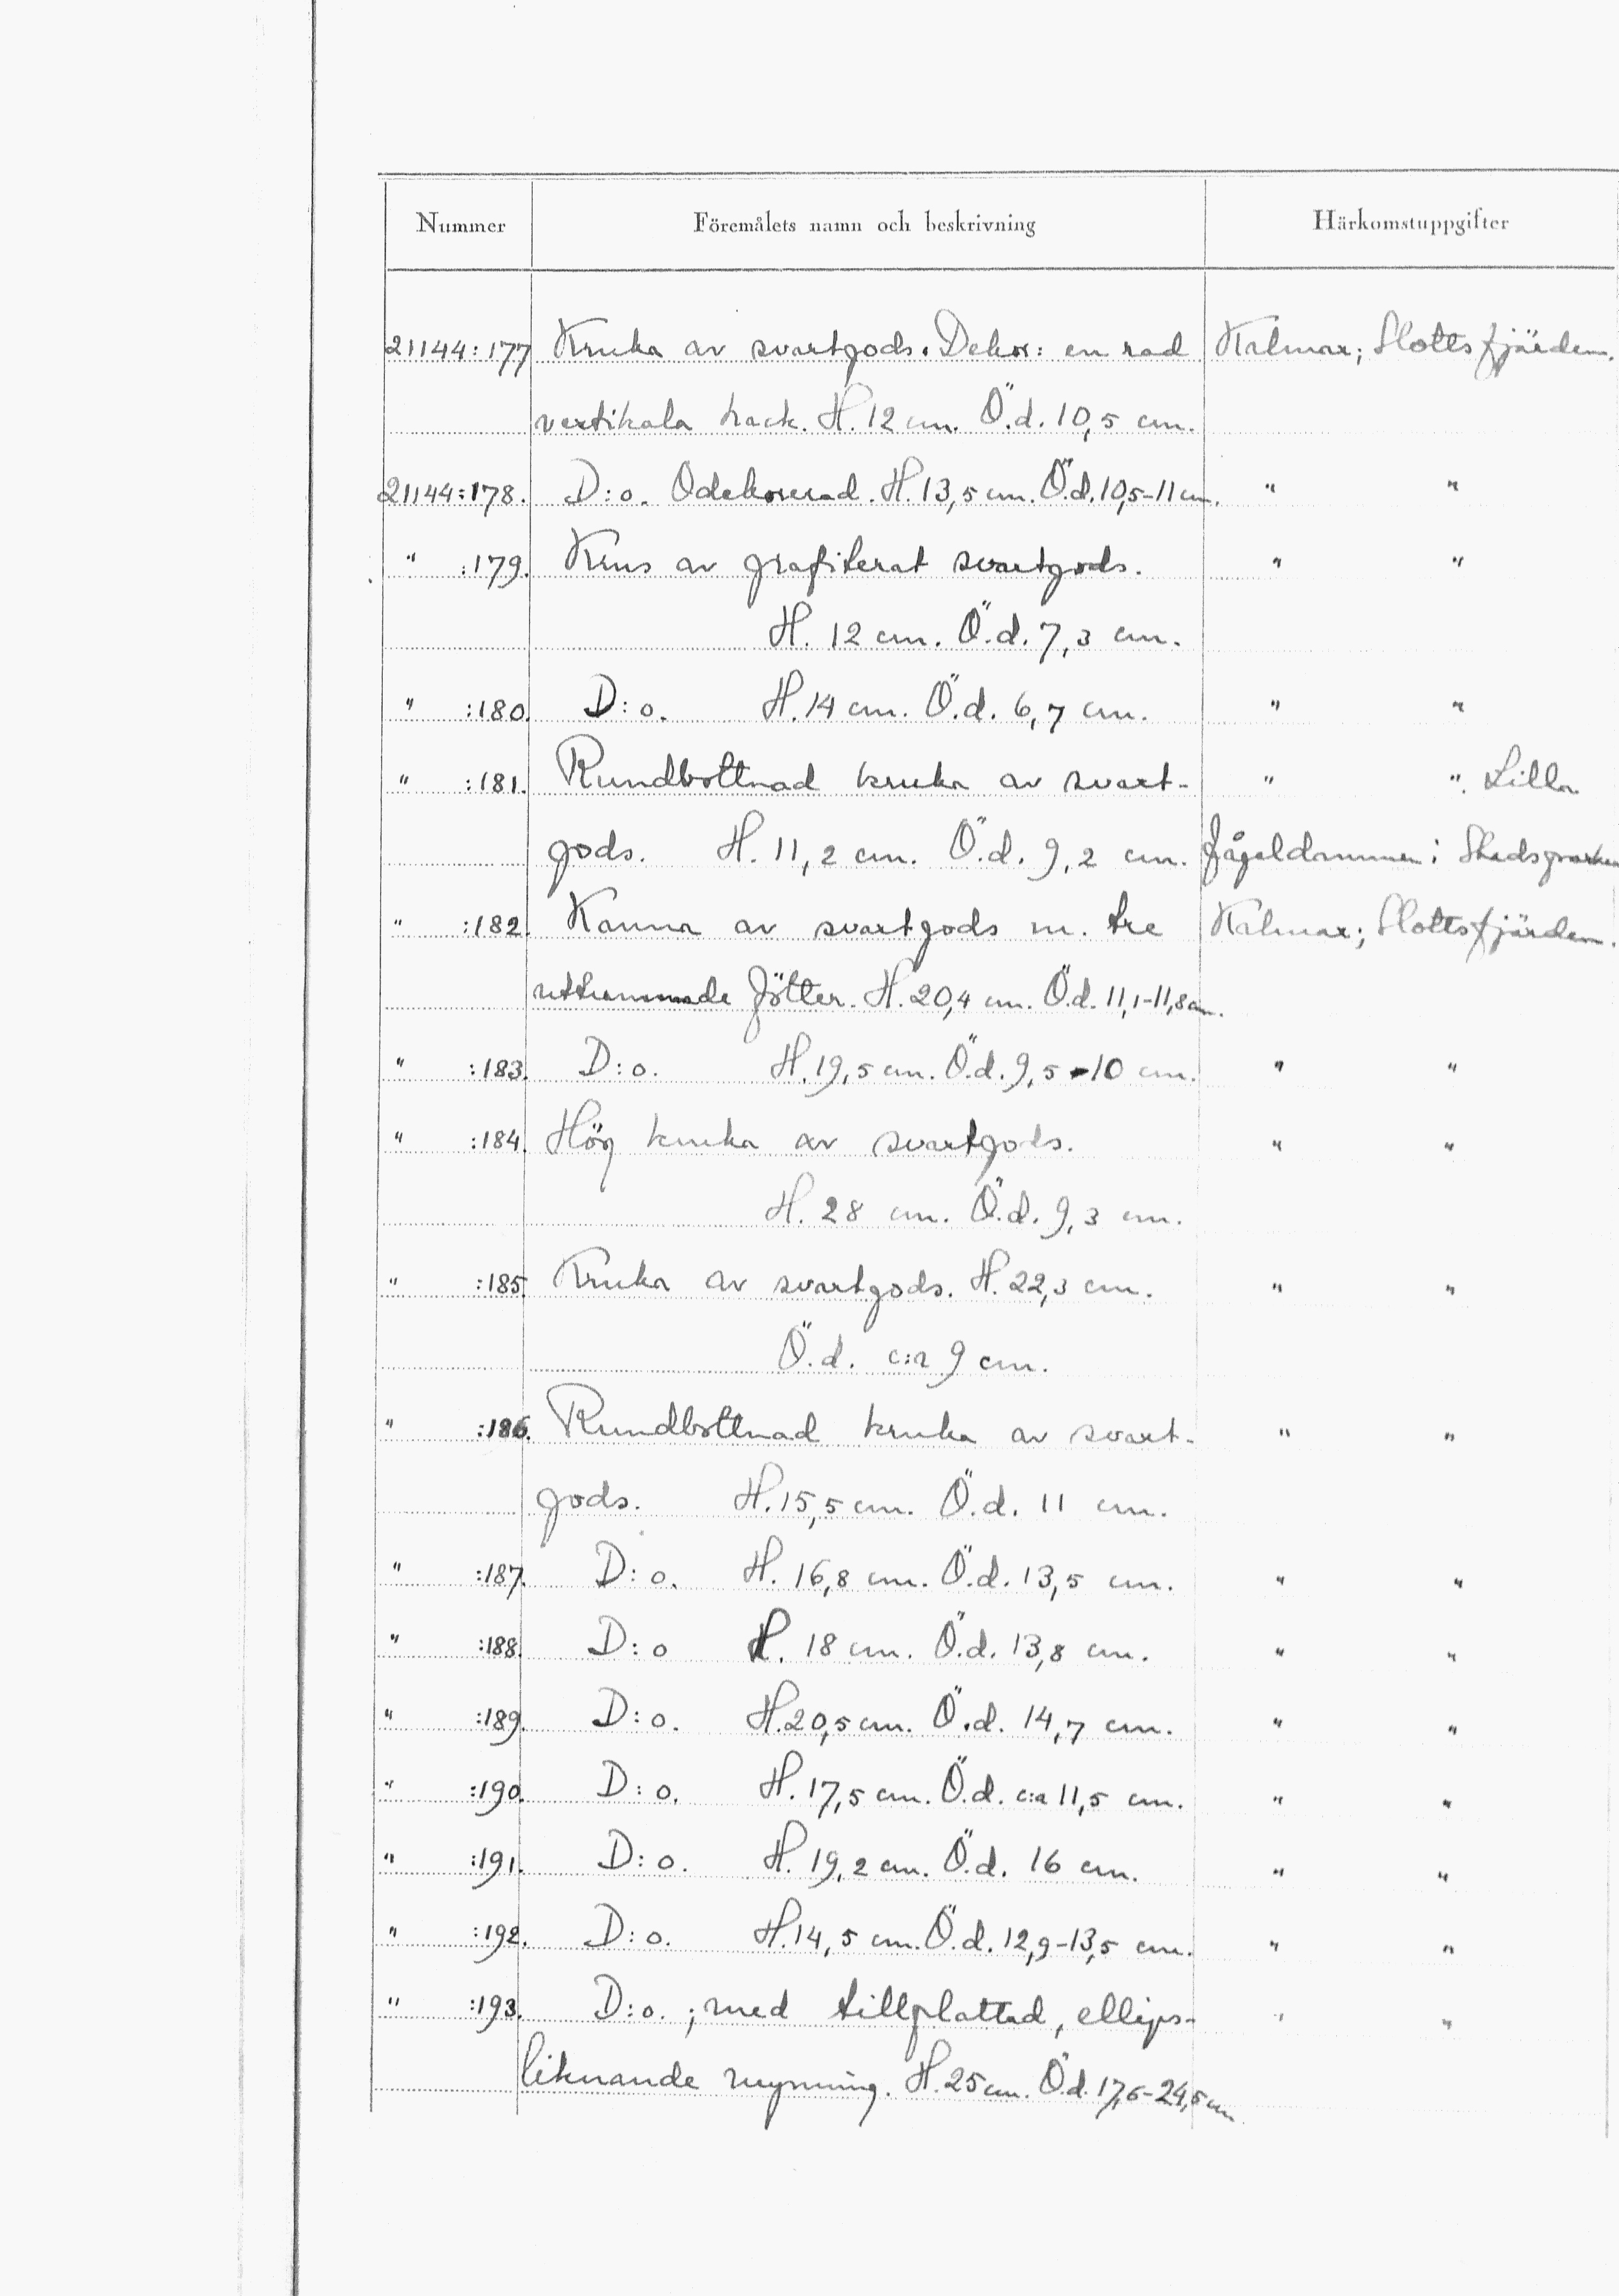 Nummer Föremålets namn och beskrivning Härkomstuppgifter
21144:177 Kruka av svartgods. Dekor: en rad Kalmar; Slottsfjärden.
vertikala hack. H. 12 cm. Ö.d. 10,5 cm.
21144:178. D:o. Odekorerad. H. 13,5 cm. Ö.d. 10,5-11 cm. " "
" :179. Krus av grafiterat svartgods. " "
H. 12 cm. Ö.d. 7,3 cm.
" :180. D:o. H. 14 cm. Ö.d. 6,7 cm. " "
" :181. Rundbottnad kruka av svart- " ". Lilla
gods. H. 11,2 cm. Ö.d. 9,2 cm. Fågeldammen i Stadsparken
" :182. Kanna av svartgods m. tre Kalmar; Slottsfjärden.
uttummade fötter. H. 20,4 cm. Ö.d. 11,1-11,8 cm.
" :183. D:o. H. 19,5 cm. Ö.d. 9,5-10 cm. " "
" :184. Hög kruka av svartgods. " "
H. 28 cm. Ö.d. 9,3 cm.
" :185. Kruka av svartgods. H. 22,3 cm. " "
Ö.d. c:a 9 cm.
" :186. Rundbottnad kruka av svart- " "
gods. H. 15,5 cm. Ö.d. 11 cm.
" :187. D:o. H. 16,8 cm. Ö.d. 13,5 cm. " "
" :188. D:o H. 18 cm. Ö.d. 13,8 cm. " "
" :189. D:o. H. 20,5 cm. Ö.d. 14,7 cm. " "
" :190. D:o. H. 17,5 cm. Ö.d. c:a 11,5 cm. " "
" :191. D:o. H. 19,2 cm. Ö.d. 16 cm. " "
" :192. D:o. H. 14,5 cm. Ö.d. 12,9-13,5 cm. " "
" :193. D:o. ; med tillplattad, ellips- " "
liknande mynning. H. 25 cm. Ö.d. 17,6-24,5 cm